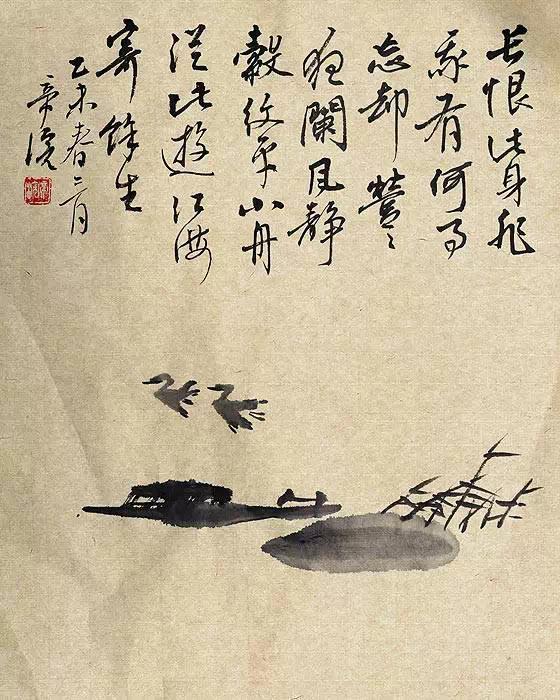 長恨此身非
我有何時
忘却營々
夜闌風静
縠紋平小舟
從此逝江海
寄餘生
乙未春三月